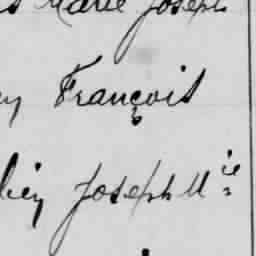 Marie Joseph
François
Joseph M.ie